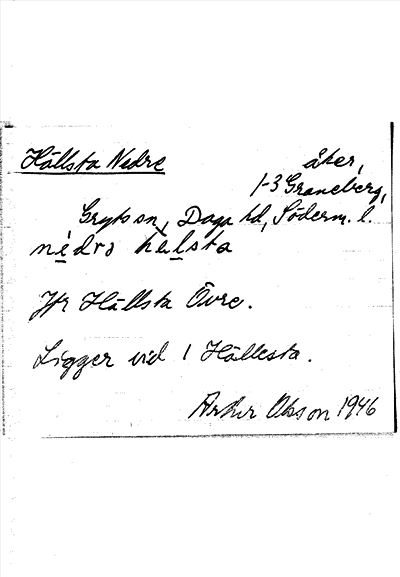 Hällsta Nedre
åker,
1-3 Graneberg,
Gryts sn, Daga hd, Söderm. l.
nedrɔ hälsta
Jfr Hällsta Övre.
Ligger vid 1 Hällesta.
Olsson 1946